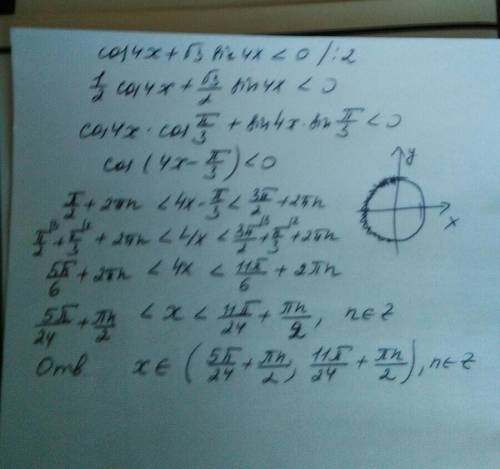 cos4x + √3 sin4x < 0 /:2
1/2 cos4x + √3/2 sin4x < 0
cos4x · cos π/3 + sin4x · sin π/3 < 0
cos (4x - π/3) < 0
y
x
π/2 + 2πn < 4x - π/3 < 3π/2 + 2πn
π/2 + π/3 + 2πn < 4x < 3π/2 + π/3 + 2πn
5π/6 + 2πn < 4x < 11π/6 + 2πn
5π/24 + πn/2 < x < 11π/24 + πn/2, n∈Z
Отв. x ∈ (5π/24 + πn/2; 11π/24 + πn/2), n∈Z